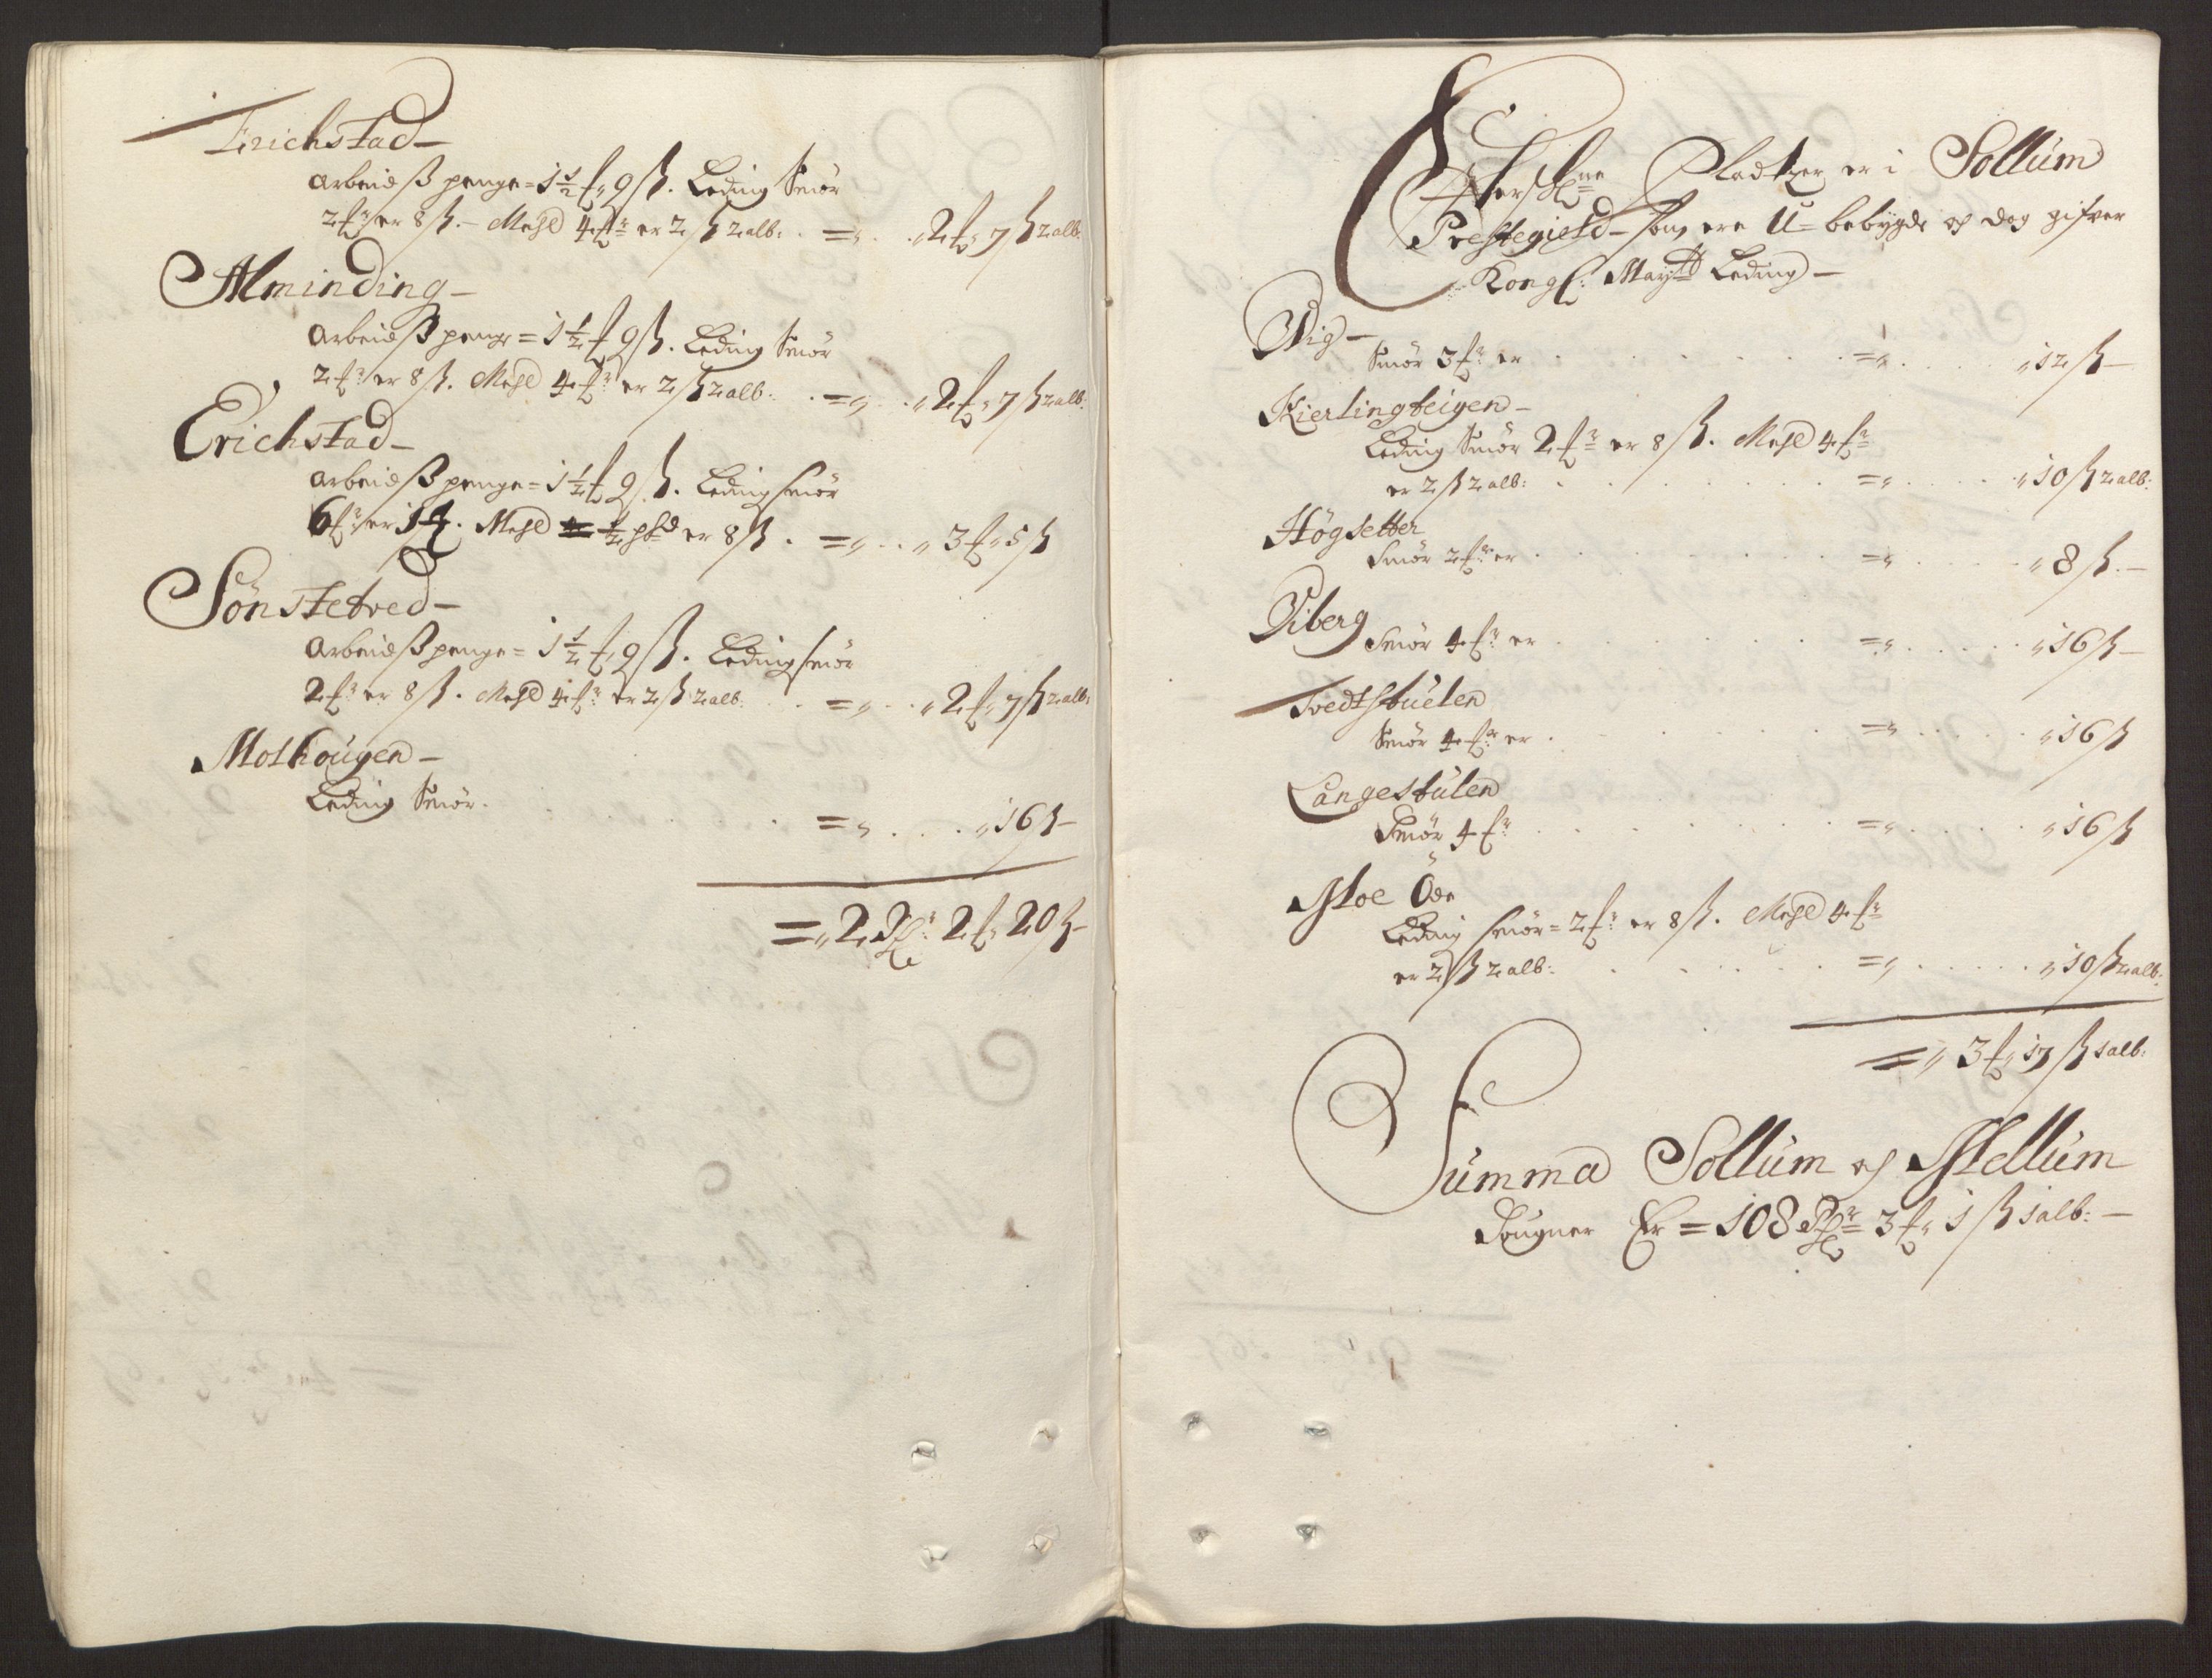 Erichstad –
Arbeidß penge = 1½ £ 9 ß. Leding Smör
2 £r er 8 ß. – Mehl 4 £r er 2 ß 2 alb: . = „ . . „ 2 £ „ 7 ß 2 alb:
Alminding –
Arbeidß penge = 1½ £ 9 ß. Leding Smör
2 £r er 8 ß. Mehl 4 £r er 2 ß 2 alb: . = „ . . „ 2 £ „ 7 ß 2 alb:
Erichstad –
Arbeidß penge = 1½ £ 9 ß. Leding smör
6 £r er 1 £. Mehl ½ pd er 8 ß . = „ . . „ 3 £ „ 5 ß
Sönstetved –
Arbeidß penge = 1½ £ 9 ß. Leding smör
2 £r er 8 ß. Mehl 4 £r er 2 ß 2 alb: . . = „ . . „ 2 £ „ 7 ß 2 alb:
Molhougen –
Leding Smör . . . . = „ . . . „ 16 ß –
= „ 2 Rdr: 2 £ „ 20 ß –
Efterschne Pladtzer er i Sollum
Prestegield – som ere U-bebygde og dog gifver
Kongl: Maytt Leding –
Wig –
Smör 3 £r er . . . . . = „ . . . „ 12 ß –
Kierlingteigen –
Leding Smör 2 £r er 8 ß. Mehl 4 £r
er 2 ß 2 alb: . . . . . = „ . . . „ 10 ß 2 alb:
Högsetter
Smör 2 £r er . . . . . = „ . . . „ 8 ß. –
Piberg
Smör 4 £r er . . . . . = „ . . . „ 16 ß –
Tvedtstuelen
Smör 4 £r er . . . . . = „ . . . „ 16 ß
Langestulen
Smör 4 £r . . . . . = „ . . . „ 16 ß
Moe Öde
Leding smör = 2 £r er 8 ß. Mehl 4 £r
er 2 ß 2 alb: . . . . . = „ . . . „ 10 ß 2 alb:
= „ 3 £ „ 17 ß 1 alb:
Summa Sollum og Mellum
Sougner Er = 108 Rdr 3 £ „ 1 ß 1 alb: –